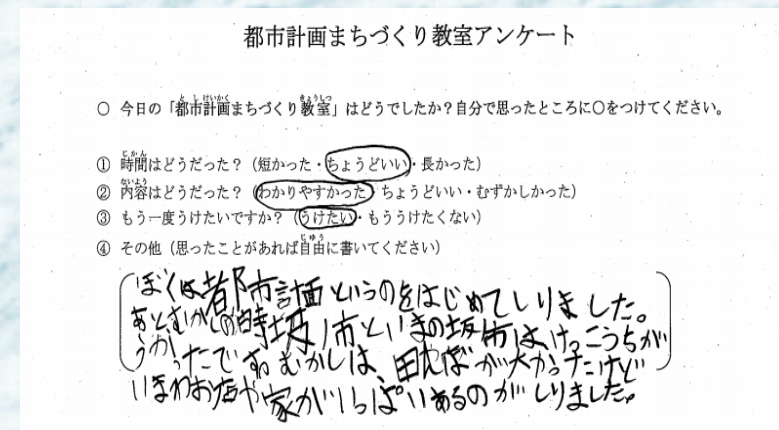 都市計画まちづくり教室アンケート
○ 今日の「都市計画まちづくり教室」はどうでしたか？自分で思ったところに○をつけてください。
① 時間はどうだった？（短かった・ちょうどいい・長かった）
② 内容はどうだった？（わかりやすかった・ちょうどいい・むずかしかった）
③ もう一度うけたいですか？（うけたい・もううけたくない）
④ その他（思ったことがあれば自由に書いてください）
ぼくは都市計画というのをはじめてしりました。
あとむかしの時坂川市といまの坂市は、けっこうちが
うかったです。むかしは、田んぼが大かったけど
いまわお店や家がいっぱいあるのがしりました。